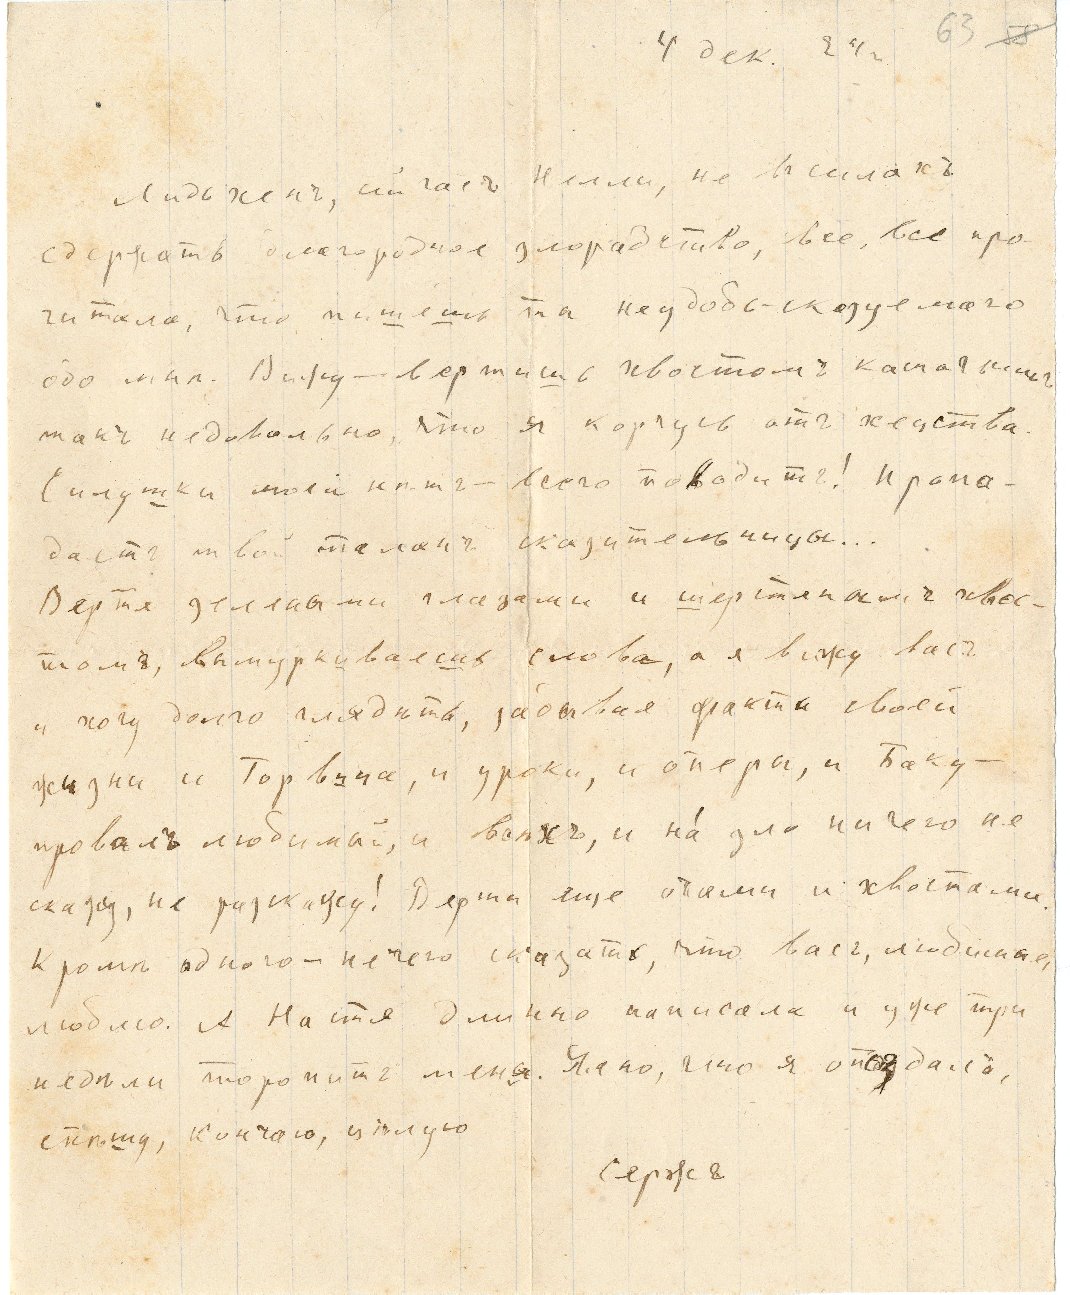 63 58
4 дек. 24 г
Лидь женъ, сейчасъ Нелли, не въ силахъ
сдержать благородное злорадство, все, все про-
читала, что пишешь ты неудобь-сказуемаго
обо мнѣ. Вижу — вертишь хвостомъ
такъ недовольно, что я корчусь отъ
Силушки моей нѣтъ — всего поводитъ! Пропа-
даетъ твой таланъ сказительницы...
Вертя зелеными глазами и шерстянымъ хвос-
томъ, вымуркиваешь слова, а я вижу васъ
и хочу долго глядѣть, забывая факты своей
жизни и и уроки, и оперы, и Баку —
провалъ любимый, и всѣхъ, и на́ зло ничего не
скажу, не разскажу! Верти еще очами и хвостами.
Кромѣ одного — нечего сказать, что васъ, любимые,
люблю. А Настя длинно написала и уже три
недѣли торопитъ меня. Ясно, что я опоздалъ,
спѣшу, кончаю, цѣлую
Сержъ